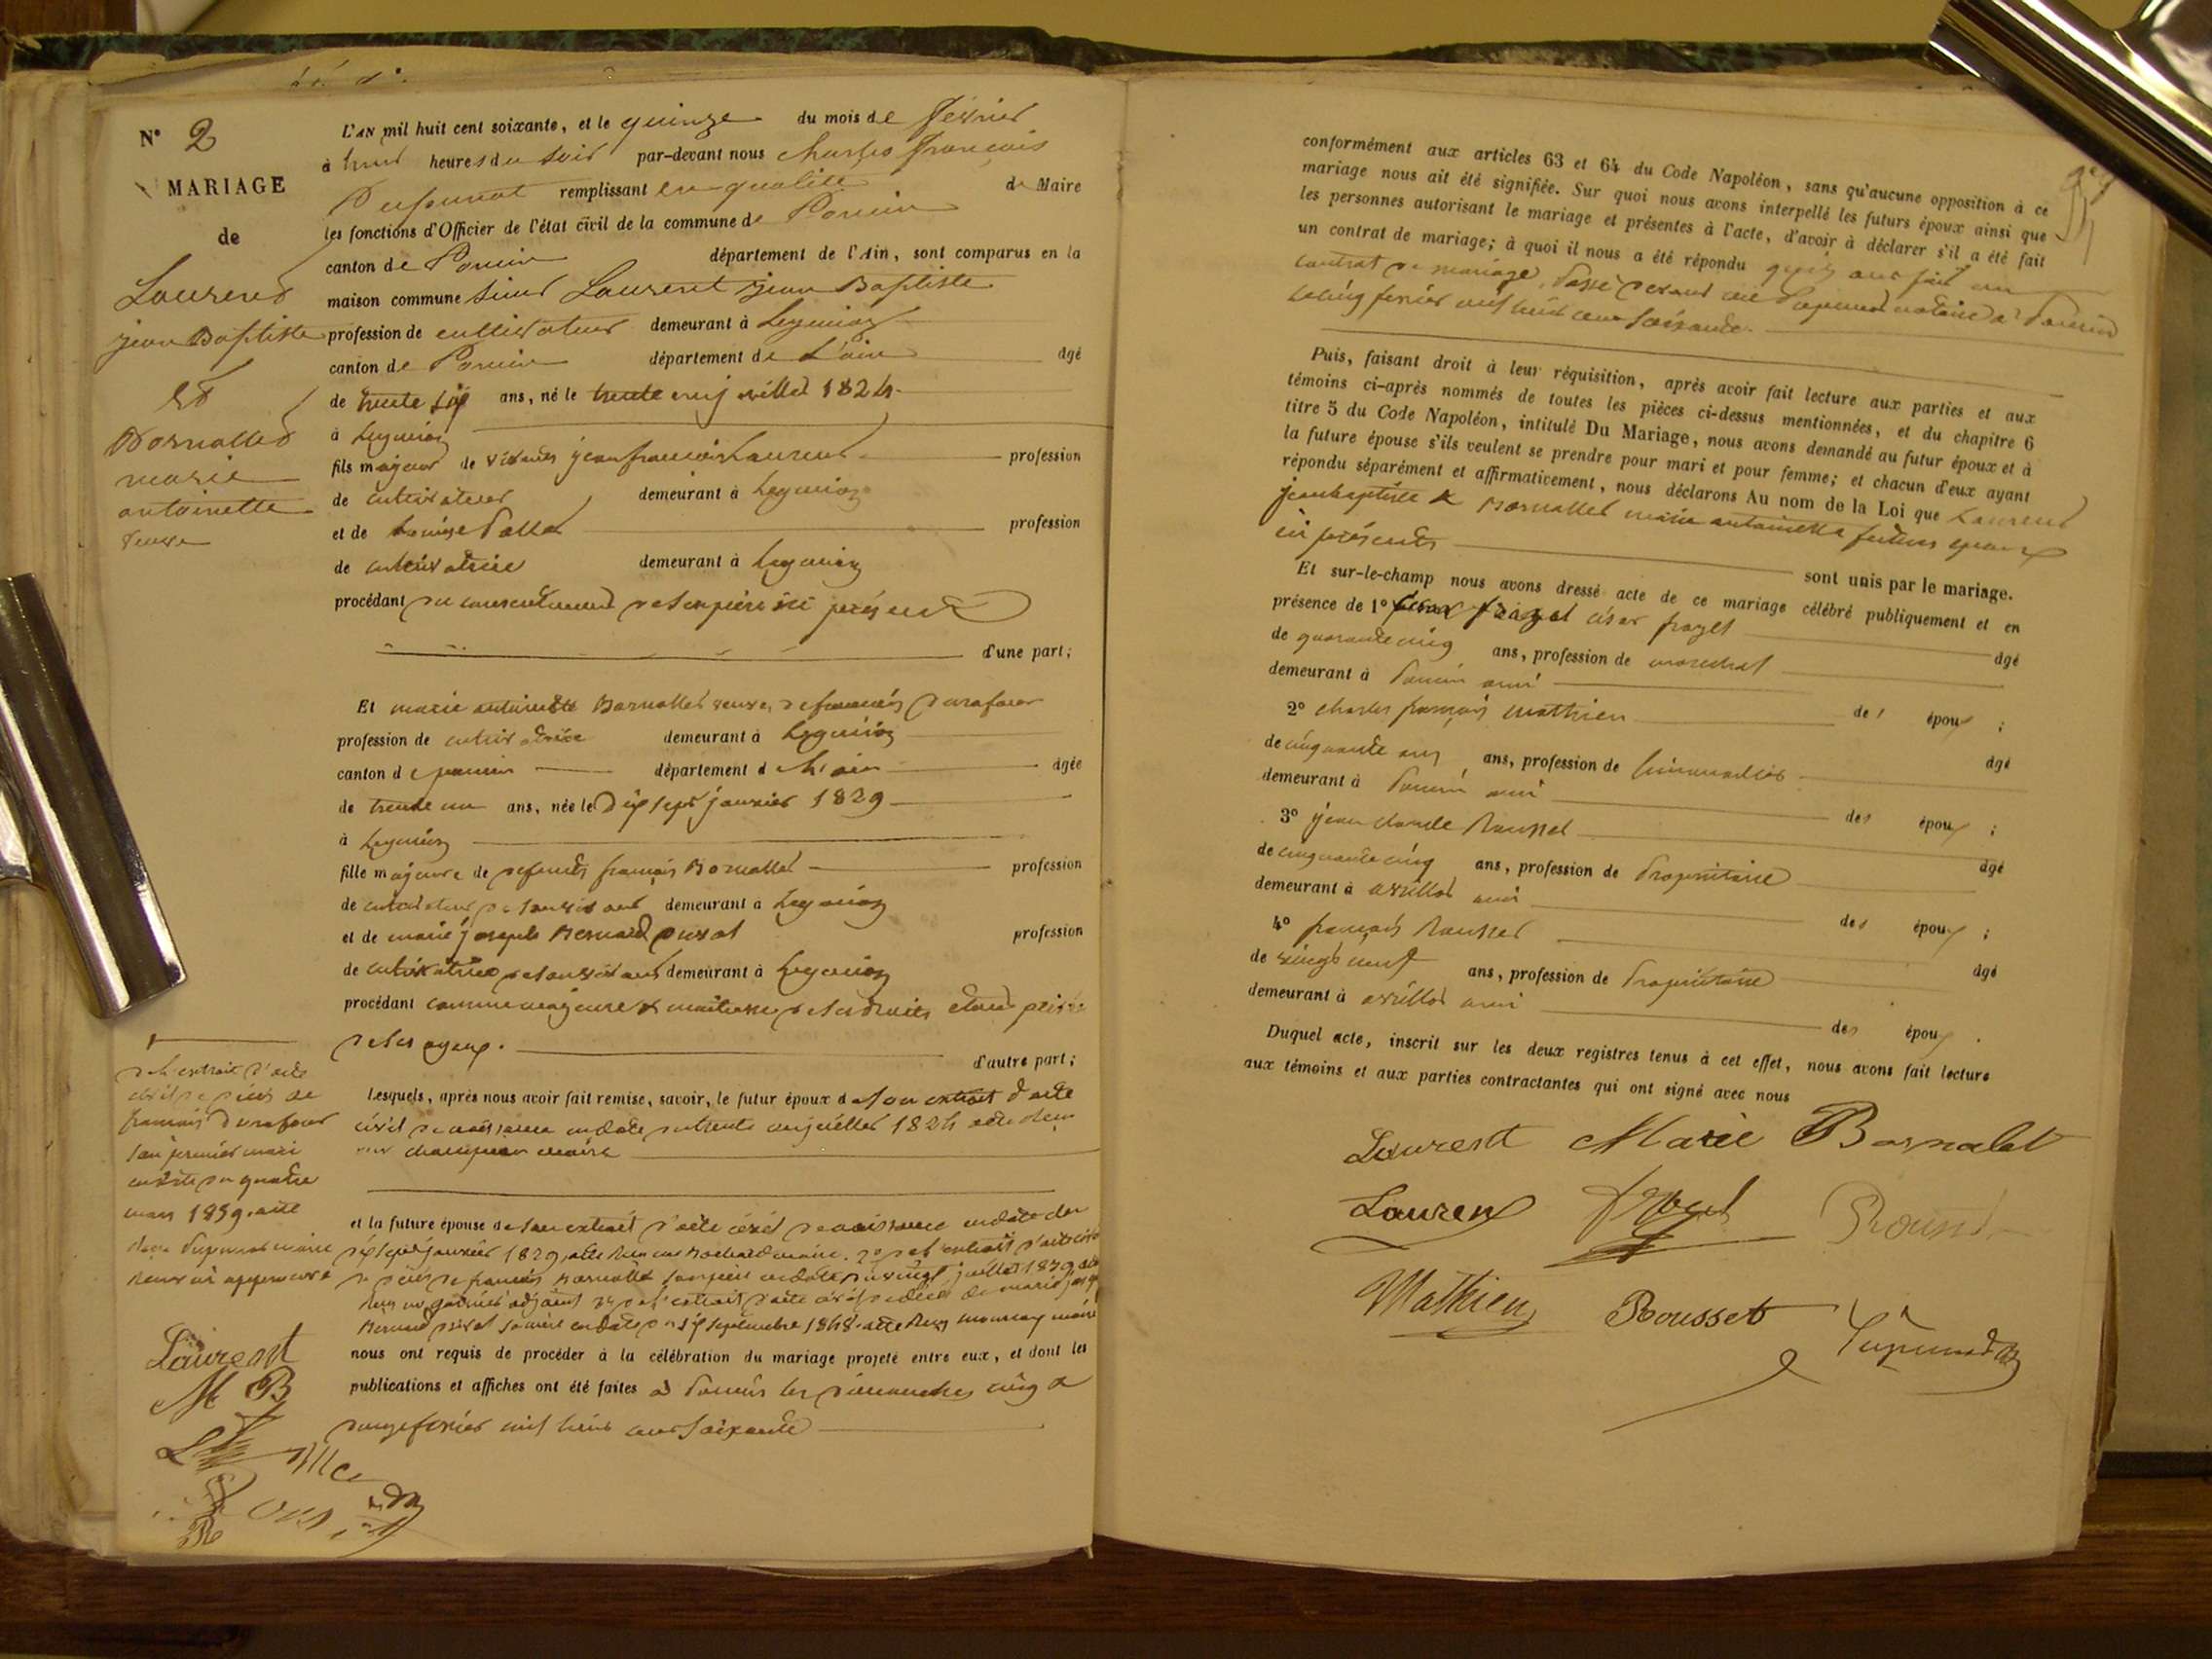 N° 2
MARIAGE
de
Laurent
jean Baptiste
et
Bornallet
marie
antoinette
veuve
L'AN mil huit cent soixante, et le quinze du mois de février
à heures du soir par-devant nous Charles François
remplissant en qualité de Maire
les fonctions d'Officier de l'état civil de la commune de Poncin
canton de Poncin département de l'Ain, sont comparus en la
maison commune sieur Laurent jean Baptiste
profession de cultivateur demeurant à Leymiat
canton de Poncin département de L'ain âgé
de trente six ans, né le trente un juillet 1824
à Leymiat
fils majeur de vivant jean francois Laurent profession
de cultivateur demeurant à Leymiat
et de Louise profession
de cultivatrice demeurant à Leymiat
procédant du consentement de son père ici présent
d'une part;
Et marie antoinette Bornallet veuve de francois Durafour
profession de cultivatrice demeurant à Leymiat
canton de poncin département de L'ain âgée
de trente un ans, née le Dix sept janvier 1829
à Leymiat
fille majeure de defunts françois Bornallet profession
de cultivateur de son vivant demeurant à Leymiat
et de marie josephe Bernard profession
de cultivatrice de son vivant demeurant à Leymiat
procédant comme majeure & maitresse de ses droits étant privée
de ses ayeux.
d'autre part;
Lesquels, après nous avoir fait remise, savoir, le futur époux de son extrait d'acte
civil de naissance en date du trente un juillet 1824
maire
et la future épouse de son extrait d'acte civil de naissance en date du
dix sept janvier 1829, maire. 2° de l'extrait d'acte civil
de décès de francois Bornallet son père en date du vingt juillet 1839
adjoint 3° de l'extrait d'acte civil de décès de marie josephe
Bernard sa mère en date du six septembre 1848 maire
nous ont requis de procéder à la célébration du mariage projeté entre eux, et dont les
publications et affiches ont été faites à Poncin les dimanches cinq &
douze fevrier mil huit cent soixante
de l'extrait d'acte
civil de décès de
francois Durafour
son premier mari
en date du quatre
mars 1859.
maire
Laurent
M B
conformément aux articles 63 et 64 du Code Napoléon, sans qu'aucune opposition à ce
mariage nous ait été signifiée. Sur quoi nous avons interpellé les futurs époux ainsi que
les personnes autorisant le mariage et présentes à l'acte, d'avoir à déclarer s'il a été fait
un contrat de mariage; à quoi il nous a été répondu qu'ils ont fait un
contrat de mariage, passé devant notaire à Poncin
le cinq fevrier mil huit cent soixante.
Puis, faisant droit à leur réquisition, après avoir fait lecture aux parties et aux
témoins ci-après nommés de toutes les pièces ci-dessus mentionnées, et du chapitre 6
titre 5 du Code Napoléon, intitulé Du Mariage, nous avons demandé au futur époux et à
la future épouse s'ils veulent se prendre pour mari et pour femme; et chacun d'eux ayant
répondu séparément et affirmativement, nous déclarons Au nom de la Loi que Laurent
jean baptiste & Bornallet marie antoinette futurs époux
ici présents sont unis par le mariage.
Et sur-le-champ nous avons dressé acte de ce mariage célébré publiquement et en
présence de 1° césar frazet âgé
de quarante cinq ans, profession de marechal
demeurant à Poncin ami des époux;
2° charles françois Mathieu âgé
de cinquante ans, profession de
demeurant à Poncin ami des époux;
3° jean claude Rousset âgé
de cinquante cinq ans, profession de Propriétaire
demeurant à ami des époux;
4° françois Rousset âgé
de vingt neuf ans, profession de Propriétaire
demeurant à ami des époux.
Duquel acte, inscrit sur les deux registres tenus à cet effet, nous avons fait lecture
aux témoins et aux parties contractantes qui ont signé avec nous
Laurent Marie Bornalet
Laurent
Mathieu Rousset